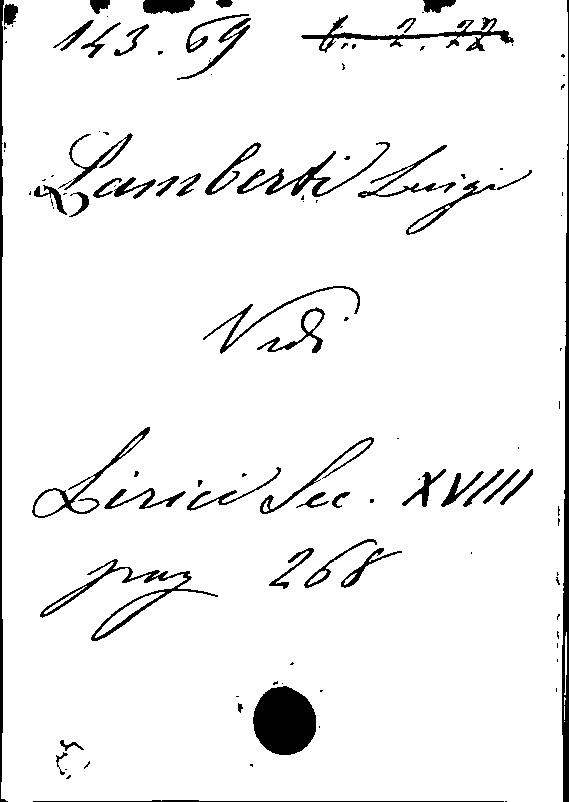 143.69 6.. 2. 22
Lamberti Luigi
Vedi
Lirici Sec. XVIII
pag 268